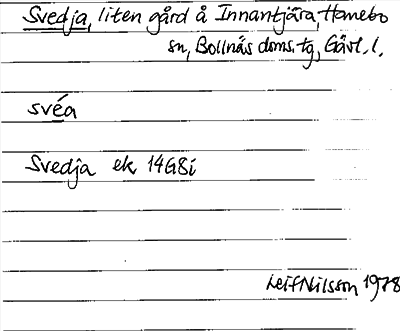 Svedja, liten gård å Innantjära, Hanebo
sn, Bollnäs doms. tg, Gävl. l.
svéa
Svedja ek 14G8i
Leif Nilsson 1978